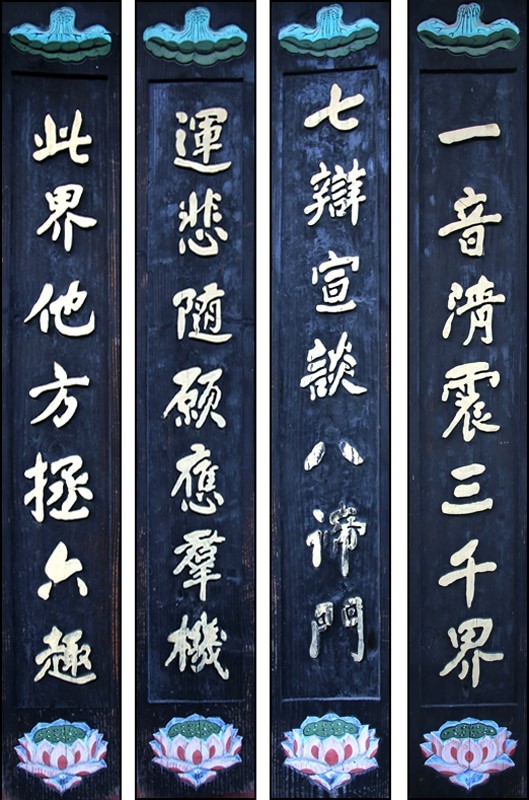 一音清震三千界
七辯宣談八諦門
運悲随願應羣機
此界他方拯六趣